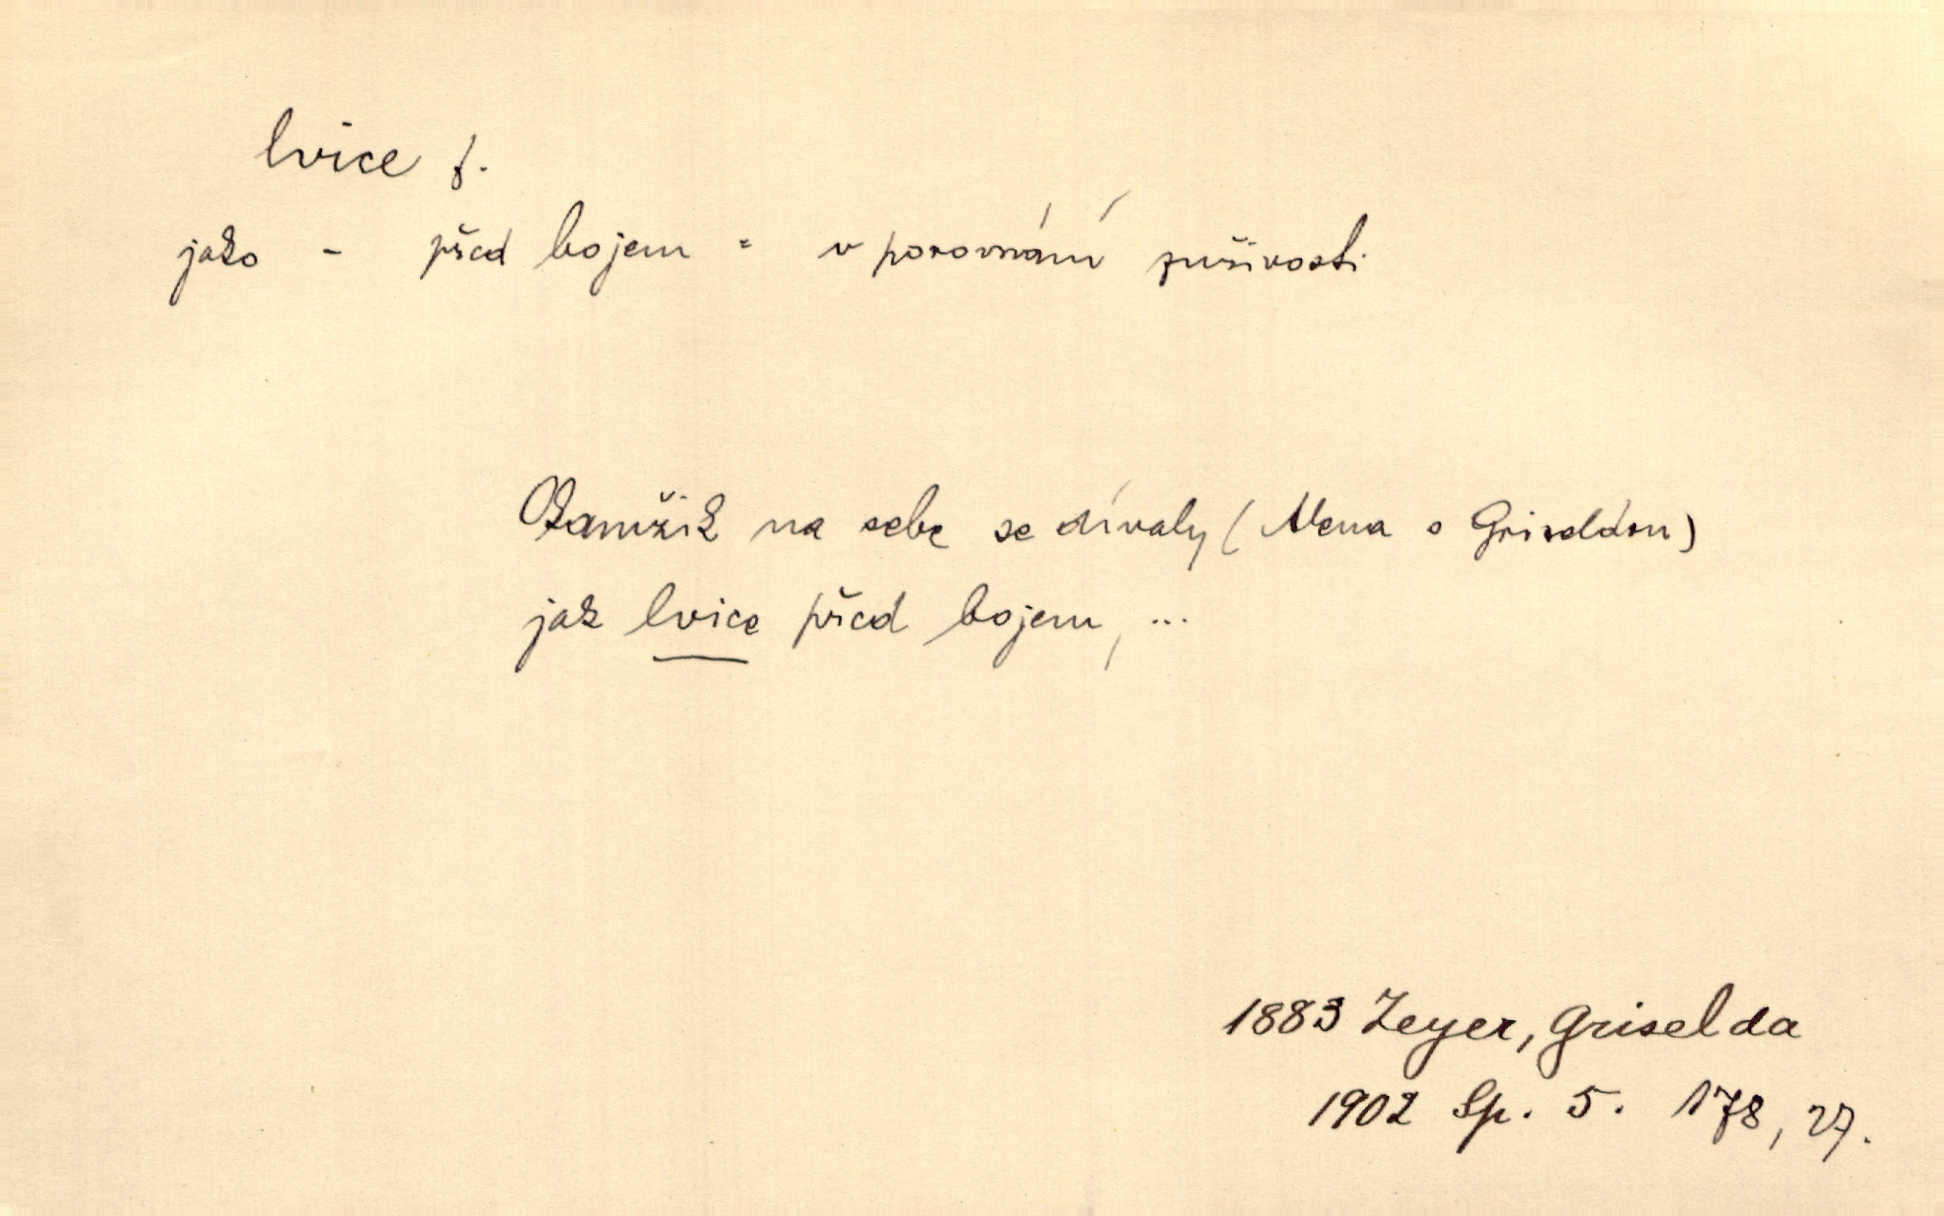 lvice f.
jako - před bojem = v porovnání zuřivosti
Okamžik na sebe se dívaly (Nena s Griseldou)
jak lvice před bojem, ...
1883 Zeyer, Griselda
1902 Sp. 5. 178, 27.